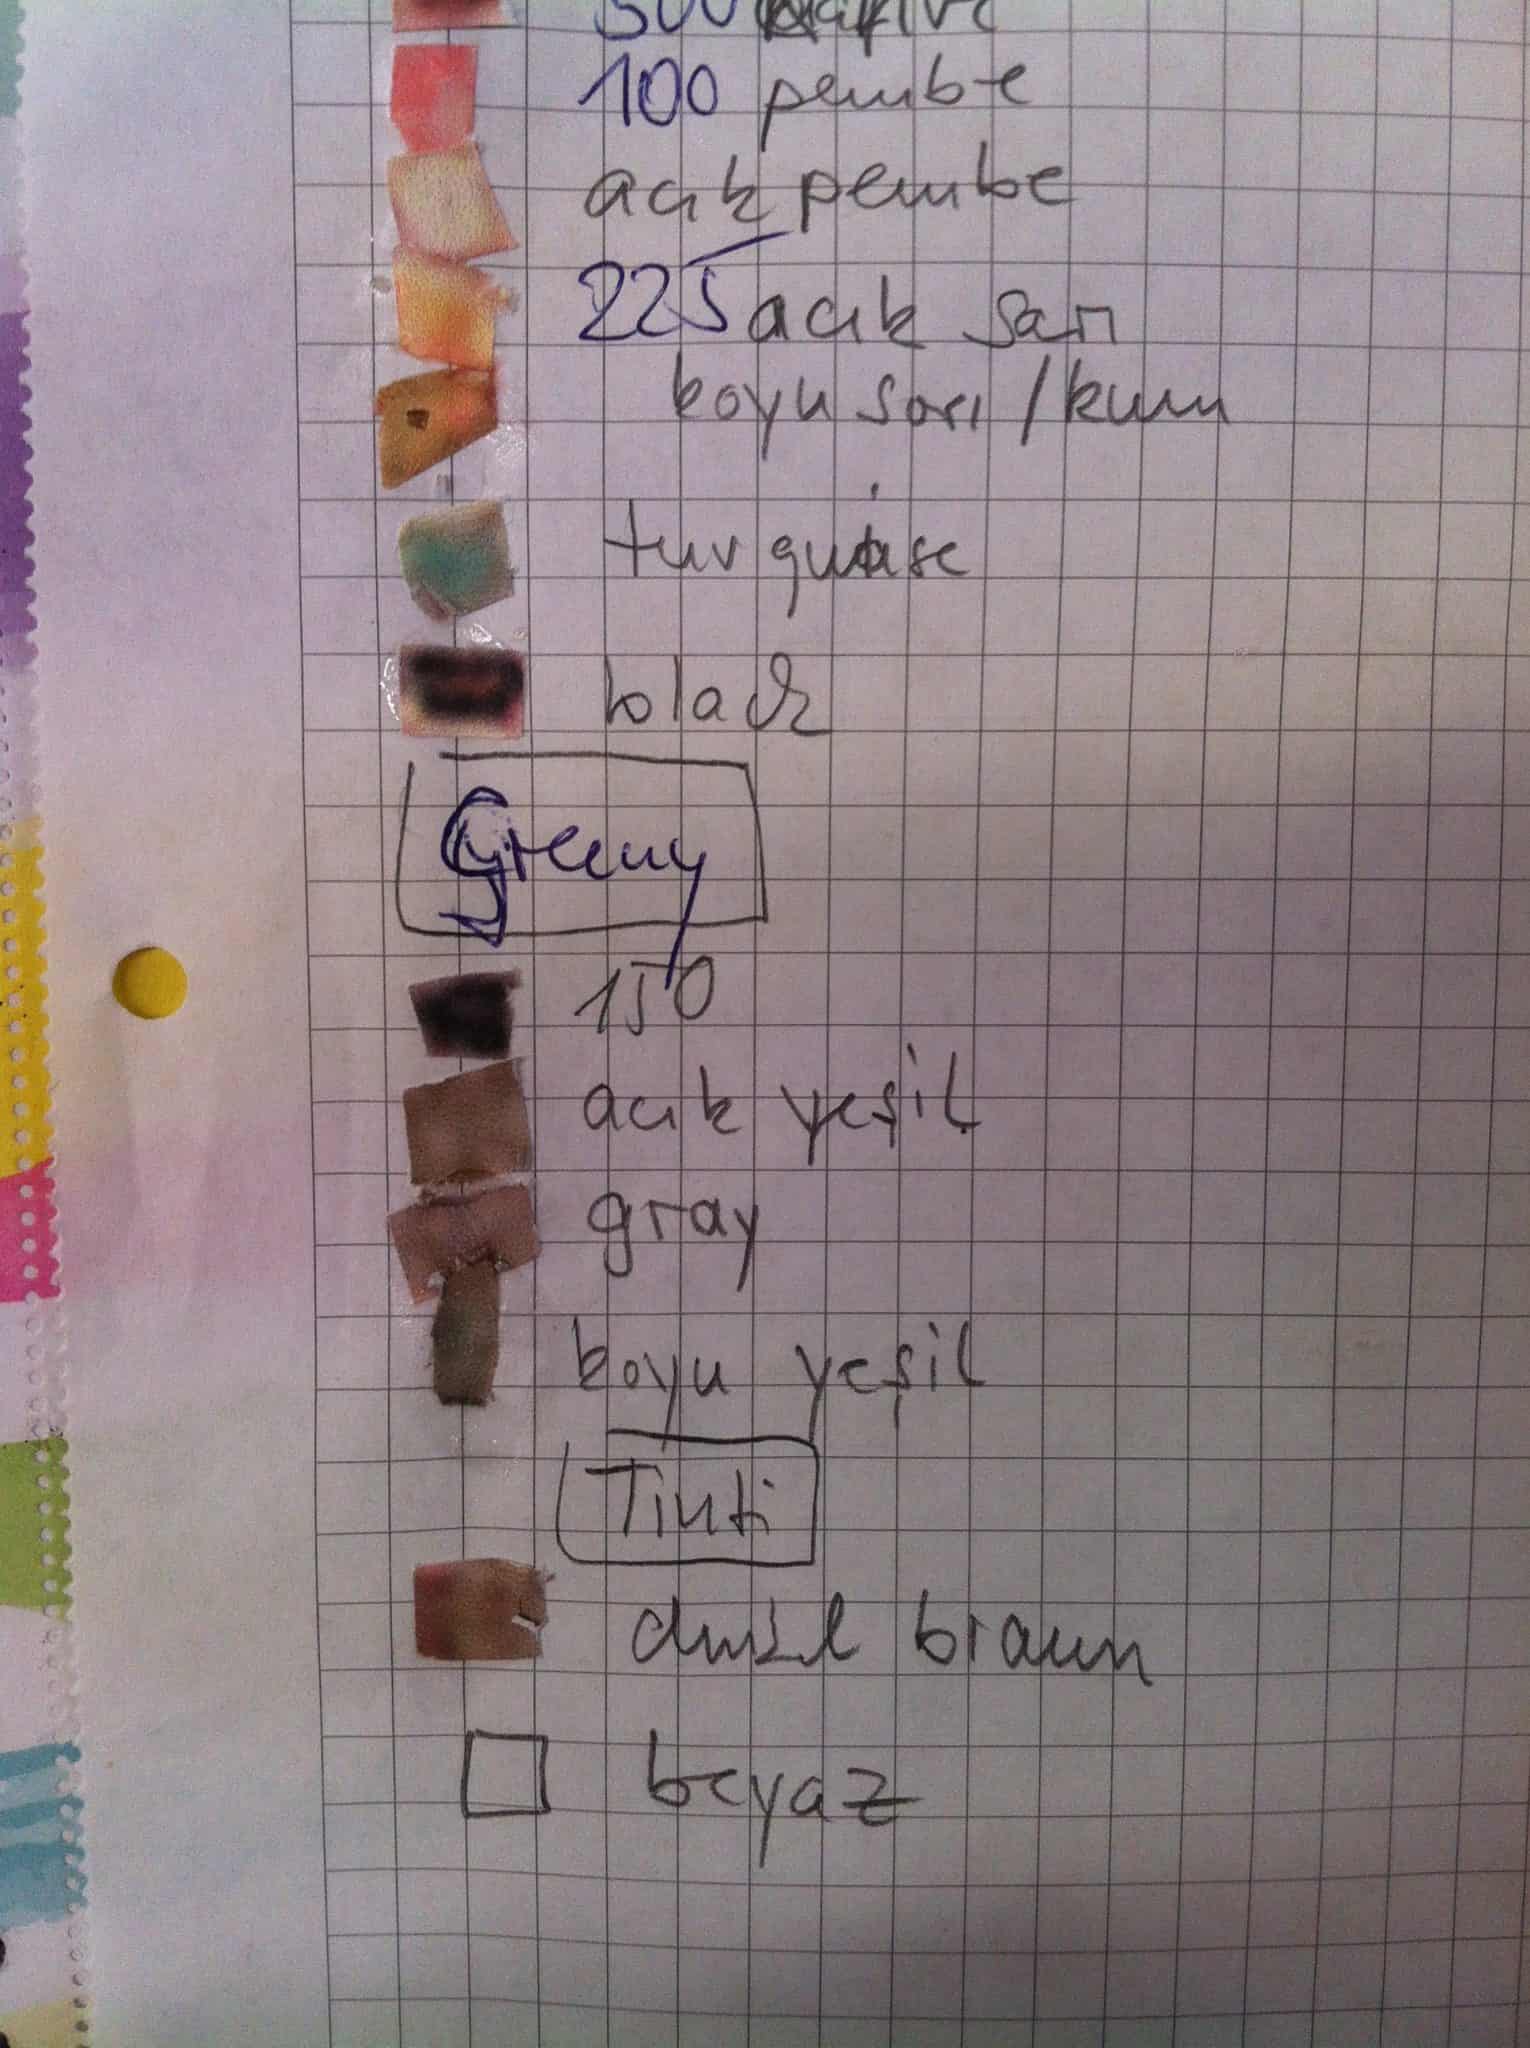 100 pembe
acık pembe
225 acık sarı
koyu sarı / kum
turquise
black
Greeny
150
acık yeşil
gray
koyu yeşil
Tinti
dunkel braun
beyaz